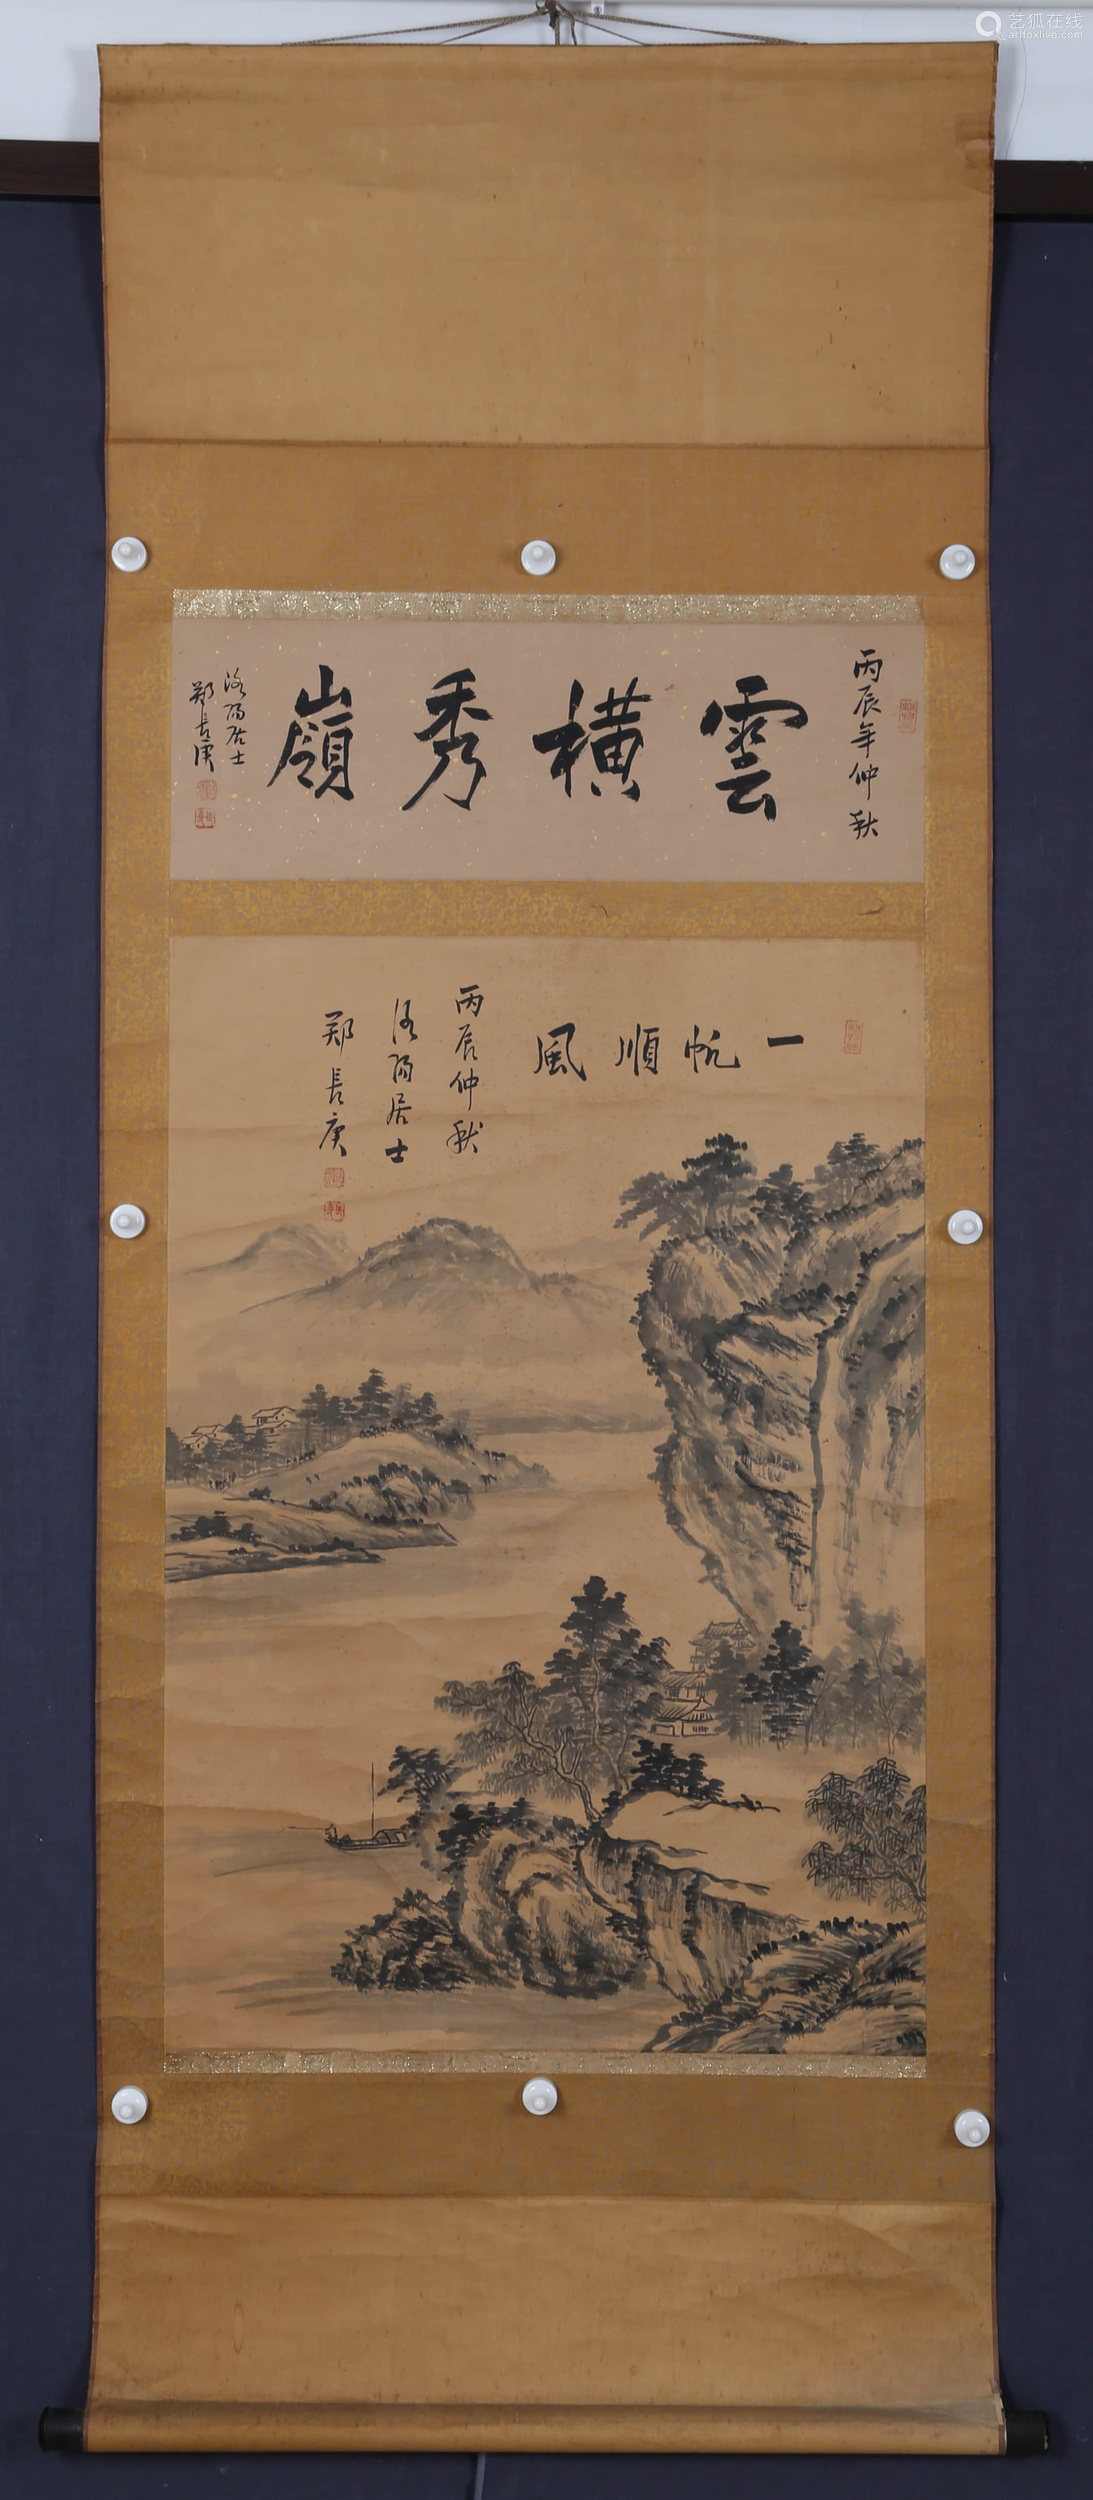 艺狐在线
artfoxlive.com
丙辰年仲秋
雲橫秀嶺
洛陽居士
郑長庚
一帆順風
丙辰仲秋
洛陽居士
郑長庚